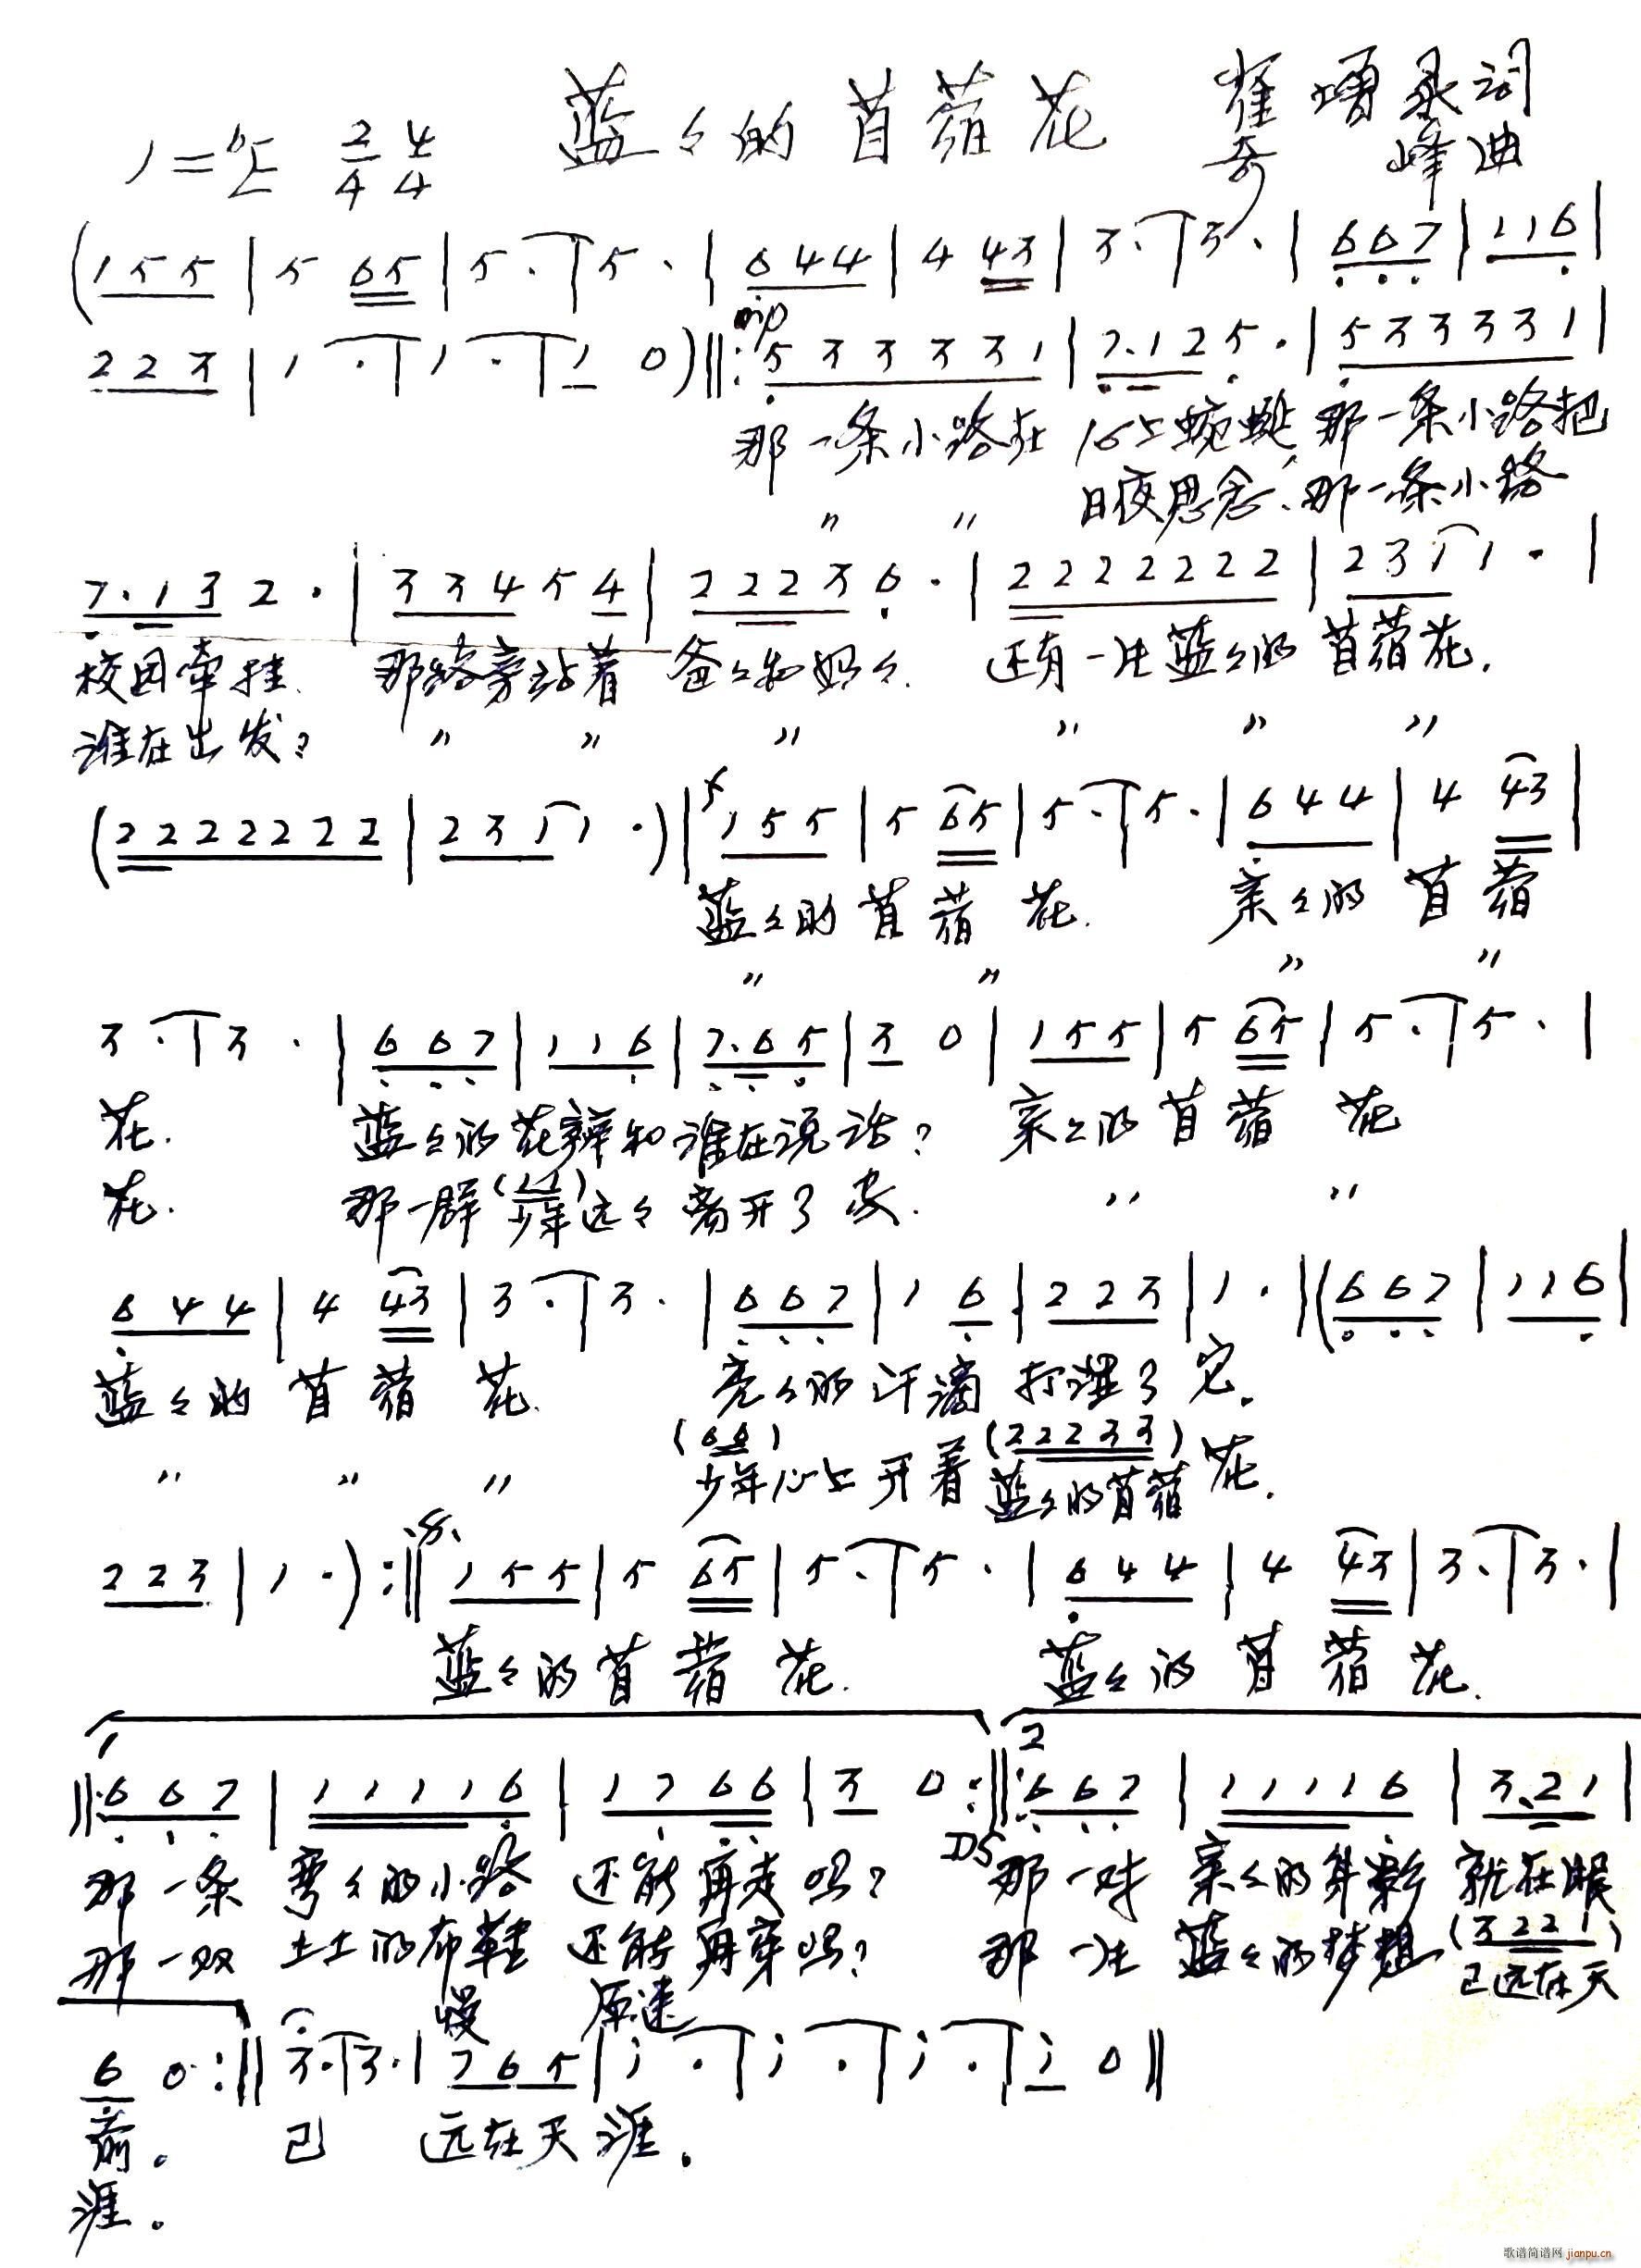 蓝々的苜蓿花 崔增录词
1=♭E 2/4 4/4 奇峰曲
(1 5 5 | 5 6 5 | 5 · | 5 · | 6 4 4 | 4 4 3 | 3 · | 3 · | 6 6 7 | 1 1 6 |
mp
2 2 3 | 1 · | 1 · | 1 0 ) ‖: 5 3 3 3 3 1 | 7 · 1 2 5 · | 5 3 3 3 3 1 |
那一条小路在 心上蜿蜒, 那一条小路把
〃 〃 日夜思念、那一条小路
7 · 1 3 2 · | 3 3 4 5 4 | 2 2 2 3 6 · | 2 2 2 2 2 2 2 | 2 3 1 1 · |
校园牵挂. 那路旁站着 爸々和妈々. 还有一片蓝々的 苜蓿花.
谁在出发? 〃 〃 〃 〃 〃 〃
f
(2 2 2 2 2 2 2 | 2 3 1 1 · ) | 1 5 5 | 5 6 5 | 5 · | 5 · | 6 4 4 | 4 4 3 |
蓝々的 苜蓿 花. 亲々的 苜蓿
〃 〃 〃 〃
3 · | 3 · | 6 6 7 | 1 1 6 | 7 · 6 5 | 3 0 | 1 5 5 | 5 6 5 | 5 · | 5 · |
花. 蓝々的花瓣和谁在说话? 亲々的 苜蓿 花
(1 1)
花. 那一群少年远々离开了家. 〃 〃
6 4 4 | 4 4 3 | 3 · | 3 · | 6 6 7 | 1 6 | 2 2 3 | 1 · | (6 6 7 | 1 1 6 |
蓝々的 苜蓿 花. 亮々的汗滴 打湿了它.
(6 6) (2 2 2 3 3)
〃 〃 〃 少年心上开着蓝々的苜蓿花.
2 2 3 | 1 · ) :‖ 𝄋 1 5 5 | 5 6 5 | 5 · | 5 · | 6 4 4 | 4 4 3 | 3 · | 3 · |
蓝々的苜蓿 花. 蓝々的 苜蓿 花.
1 2
‖: 6 6 7 | 1 1 1 1 6 | 1 7 6 6 | 3 0 :‖: 6 6 7 | 1 1 1 1 6 | 3 · 2 1 |
DS
那一条 弯々的小路 还能再走吗? 那一对 亲々的身影 就在眼
(3 2 2 1)
那一双 土土的布鞋 还能再穿吗? 那一片 蓝々的梦想 已远在天
慢 原速
6 0 :‖ 3 · | 3 · | 7 6 5 | i · | i · | i · | i 0 ‖
前。 已 远在天涯.
涯。
歌谱简谱网 jianpu.cn